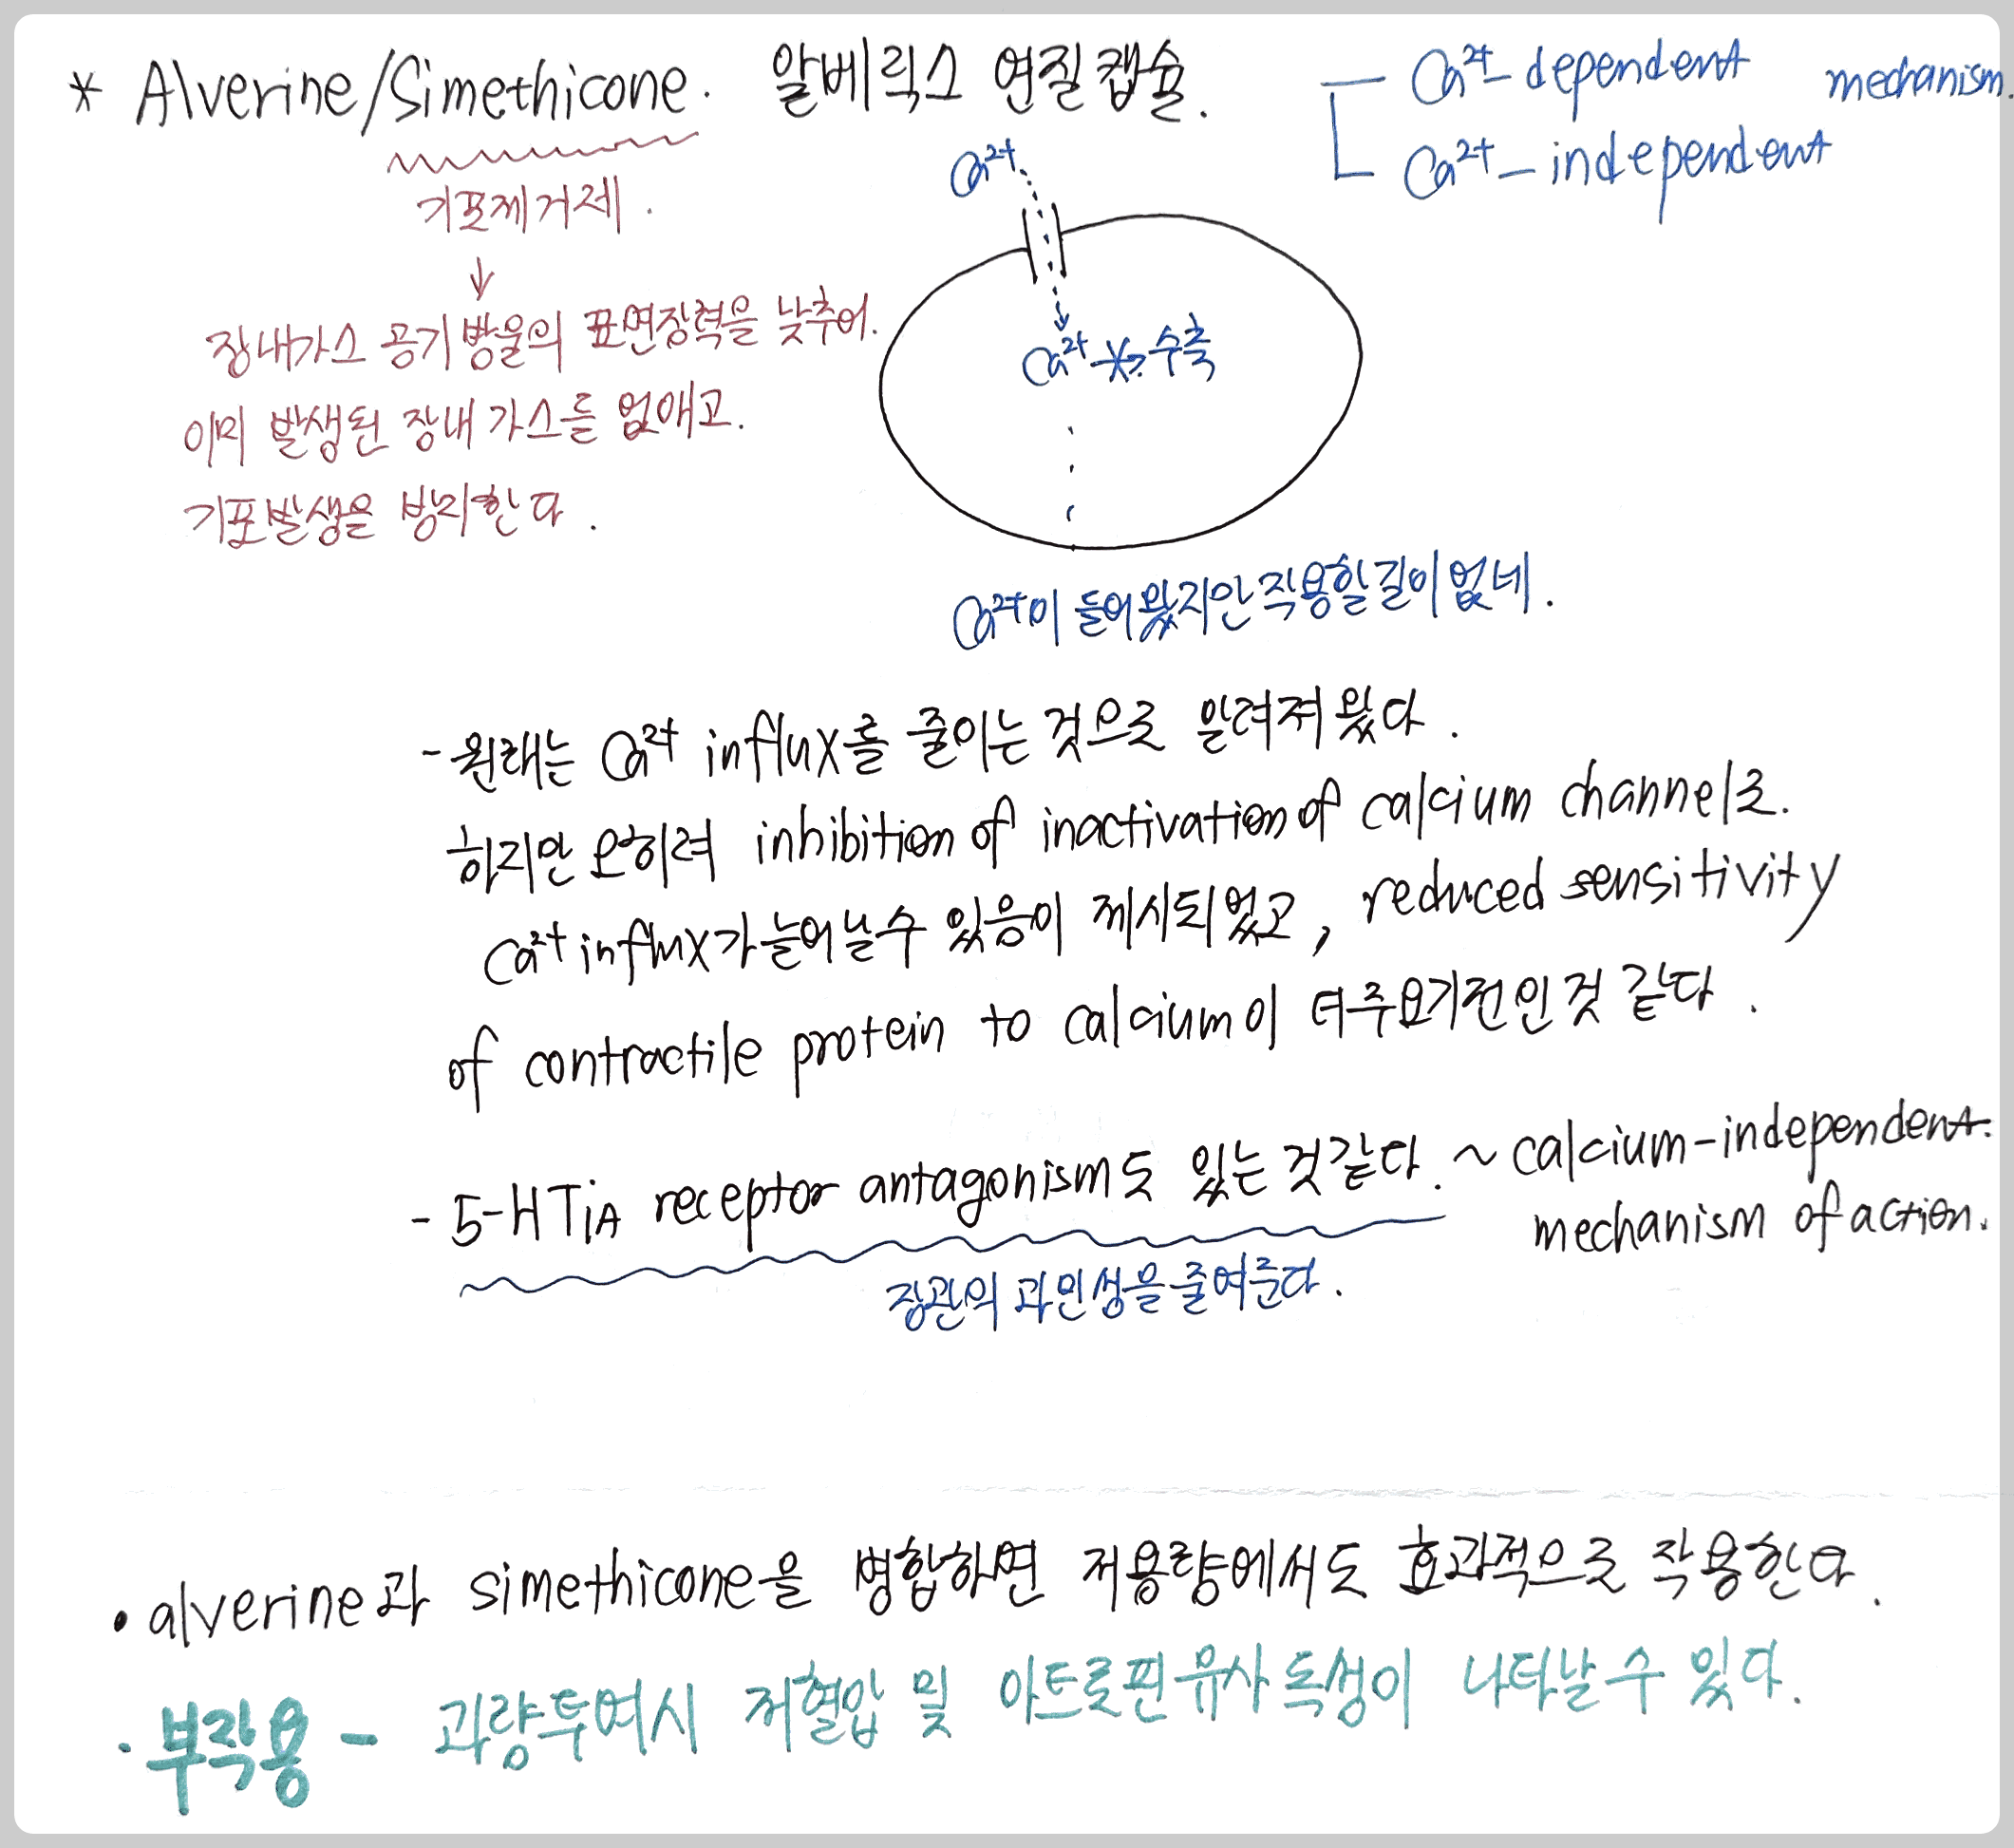 * Alverine/Simethicone. 알베릭스 연질캡슐.
Ca²⁺-dependent mechanism.
Ca²⁺-independent
기포제거제.
↓
장내가스 공기방울의 표면장력을 낮추어.
이미 발생된 장내 가스를 없애고.
기포발생을 방지한다.
Ca²⁺
Ca²⁺ -X→ 수축
Ca²⁺이 들어왔지만 작용할길이 없네.
- 원래는 Ca²⁺ influx를 줄이는 것으로 알려져 왔다.
하지만 오히려 inhibition of inactivation of calcium channel로.
Ca²⁺ influx가 늘어날수 있음이 제시되었고, reduced sensitivity
of contractile protein to calcium이 더주요기전인것 같다.
- 5-HT1A receptor antagonism도 있는 것같다. ~ calcium-independent.
mechanism of action.
장관의 과민성을 줄여준다.
• alverine과 simethicone을 병합하면 저용량에서도 효과적으로 작용한다.
· 부작용 - 과량투여시 저혈압 및 아트로핀유사독성이 나타날수 있다.